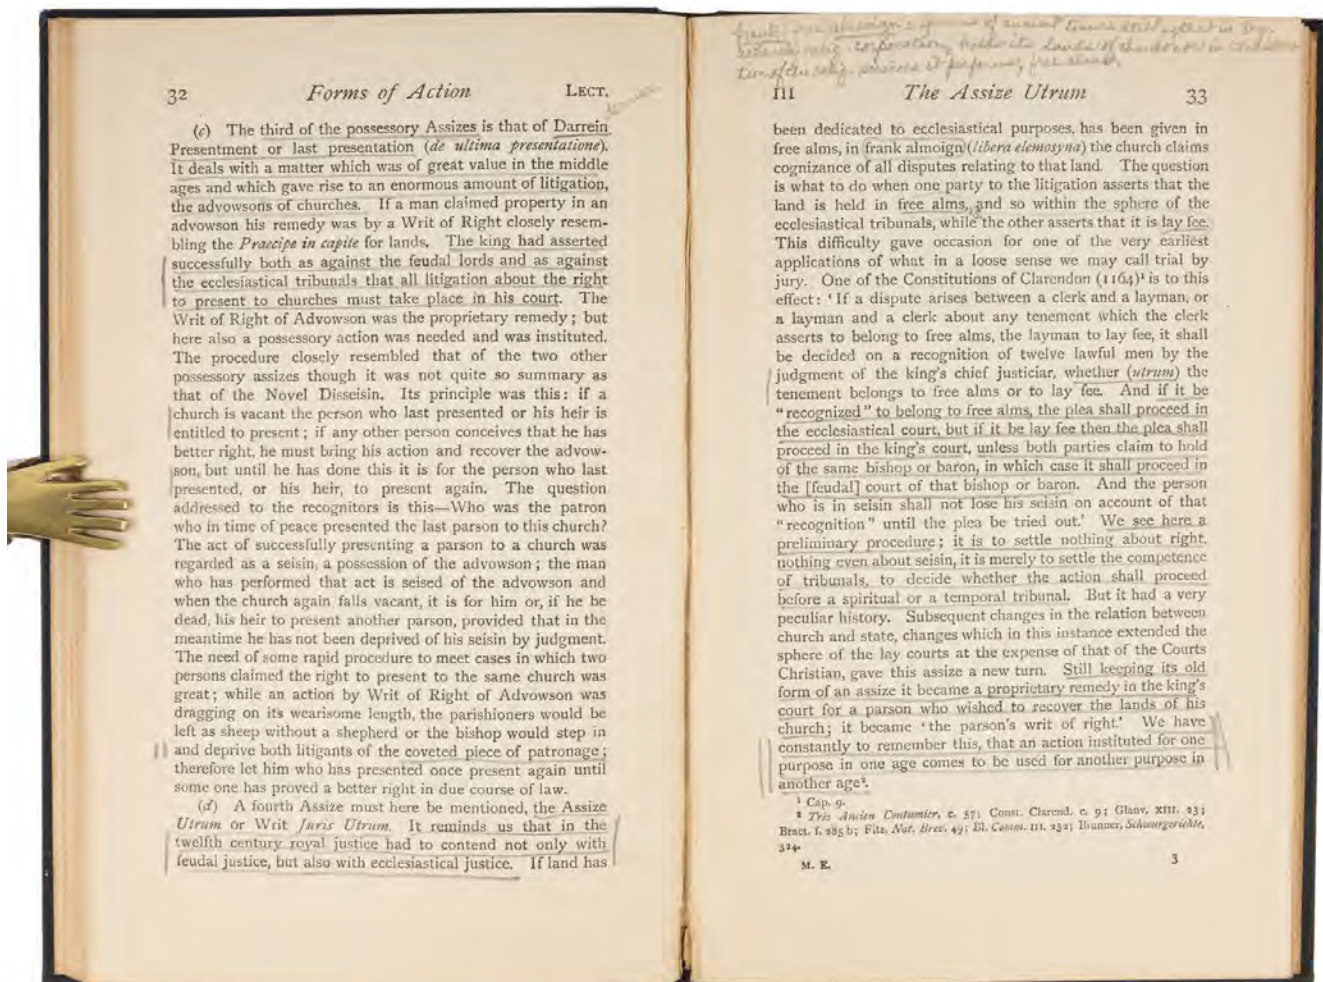 32 Forms of Action LECT.
(c) The third of the possessory Assizes is that of Darrein
Presentment or last presentation (de ultima presentatione).
It deals with a matter which was of great value in the middle
ages and which gave rise to an enormous amount of litigation,
the advowsons of churches. If a man claimed property in an
advowson his remedy was by a Writ of Right closely resem-
bling the Praecipe in capite for lands. The king had asserted
successfully both as against the feudal lords and as against
the ecclesiastical tribunals that all litigation about the right
to present to churches must take place in his court. The
Writ of Right of Advowson was the proprietary remedy; but
here also a possessory action was needed and was instituted.
The procedure closely resembled that of the two other
possessory assizes though it was not quite so summary as
that of the Novel Disseisin. Its principle was this: if a
church is vacant the person who last presented or his heir is
entitled to present; if any other person conceives that he has
better right, he must bring his action and recover the advow-
son, but until he has done this it is for the person who last
presented, or his heir, to present again. The question
addressed to the recognitors is this—Who was the patron
who in time of peace presented the last parson to this church?
The act of successfully presenting a parson to a church was
regarded as a seisin, a possession of the advowson; the man
who has performed that act is seised of the advowson and
when the church again falls vacant, it is for him or, if he be
dead, his heir to present another parson, provided that in the
meantime he has not been deprived of his seisin by judgment.
The need of some rapid procedure to meet cases in which two
persons claimed the right to present to the same church was
great; while an action by Writ of Right of Advowson was
dragging on its wearisome length, the parishioners would be
left as sheep without a shepherd or the bishop would step in
and deprive both litigants of the coveted piece of patronage;
therefore let him who has presented once present again until
some one has proved a better right in due course of law.
(d) A fourth Assize must here be mentioned, the Assize
Utrum or Writ Juris Utrum. It reminds us that in the
twelfth century royal justice had to contend not only with
feudal justice, but also with ecclesiastical justice. If land has
frank almoign of ancient tenure still
relig. corporation holds its lands of the donor in considera-
tion of the relig. services it performs, free alms
III The Assize Utrum 33
been dedicated to ecclesiastical purposes, has been given in
free alms, in frank almoign (libera elemosyna) the church claims
cognizance of all disputes relating to that land. The question
is what to do when one party to the litigation asserts that the
land is held in free alms, and so within the sphere of the
ecclesiastical tribunals, while the other asserts that it is lay fee.
This difficulty gave occasion for one of the very earliest
applications of what in a loose sense we may call trial by
jury. One of the Constitutions of Clarendon (1164)¹ is to this
effect: 'If a dispute arises between a clerk and a layman, or
a layman and a clerk about any tenement which the clerk
asserts to belong to free alms, the layman to lay fee, it shall
be decided on a recognition of twelve lawful men by the
judgment of the king's chief justiciar, whether (utrum) the
tenement belongs to free alms or to lay fee. And if it be
"recognized" to belong to free alms, the plea shall proceed in
the ecclesiastical court, but if it be lay fee then the plea shall
proceed in the king's court, unless both parties claim to hold
of the same bishop or baron, in which case it shall proceed in
the [feudal] court of that bishop or baron. And the person
who is in seisin shall not lose his seisin on account of that
"recognition" until the plea be tried out.' We see here a
preliminary procedure; it is to settle nothing about right,
nothing even about seisin, it is merely to settle the competence
of tribunals, to decide whether the action shall proceed
before a spiritual or a temporal tribunal. But it had a very
peculiar history. Subsequent changes in the relation between
church and state, changes which in this instance extended the
sphere of the lay courts at the expense of that of the Courts
Christian, gave this assize a new turn. Still keeping its old
form of an assize it became a proprietary remedy in the king's
court for a parson who wished to recover the lands of his
church; it became 'the parson's writ of right.' We have
constantly to remember this, that an action instituted for one
purpose in one age comes to be used for another purpose in
another age².
¹ Cap. 9.
² Très Ancien Coutumier, c. 57; Const. Clarend. c. 9; Glanv. XIII. 23;
Bract. f. 285 b; Fitz. Nat. Brev. 49; Bl. Comm. III. 252; Brunner, Schwurgerichte,
324.
M. E. 3